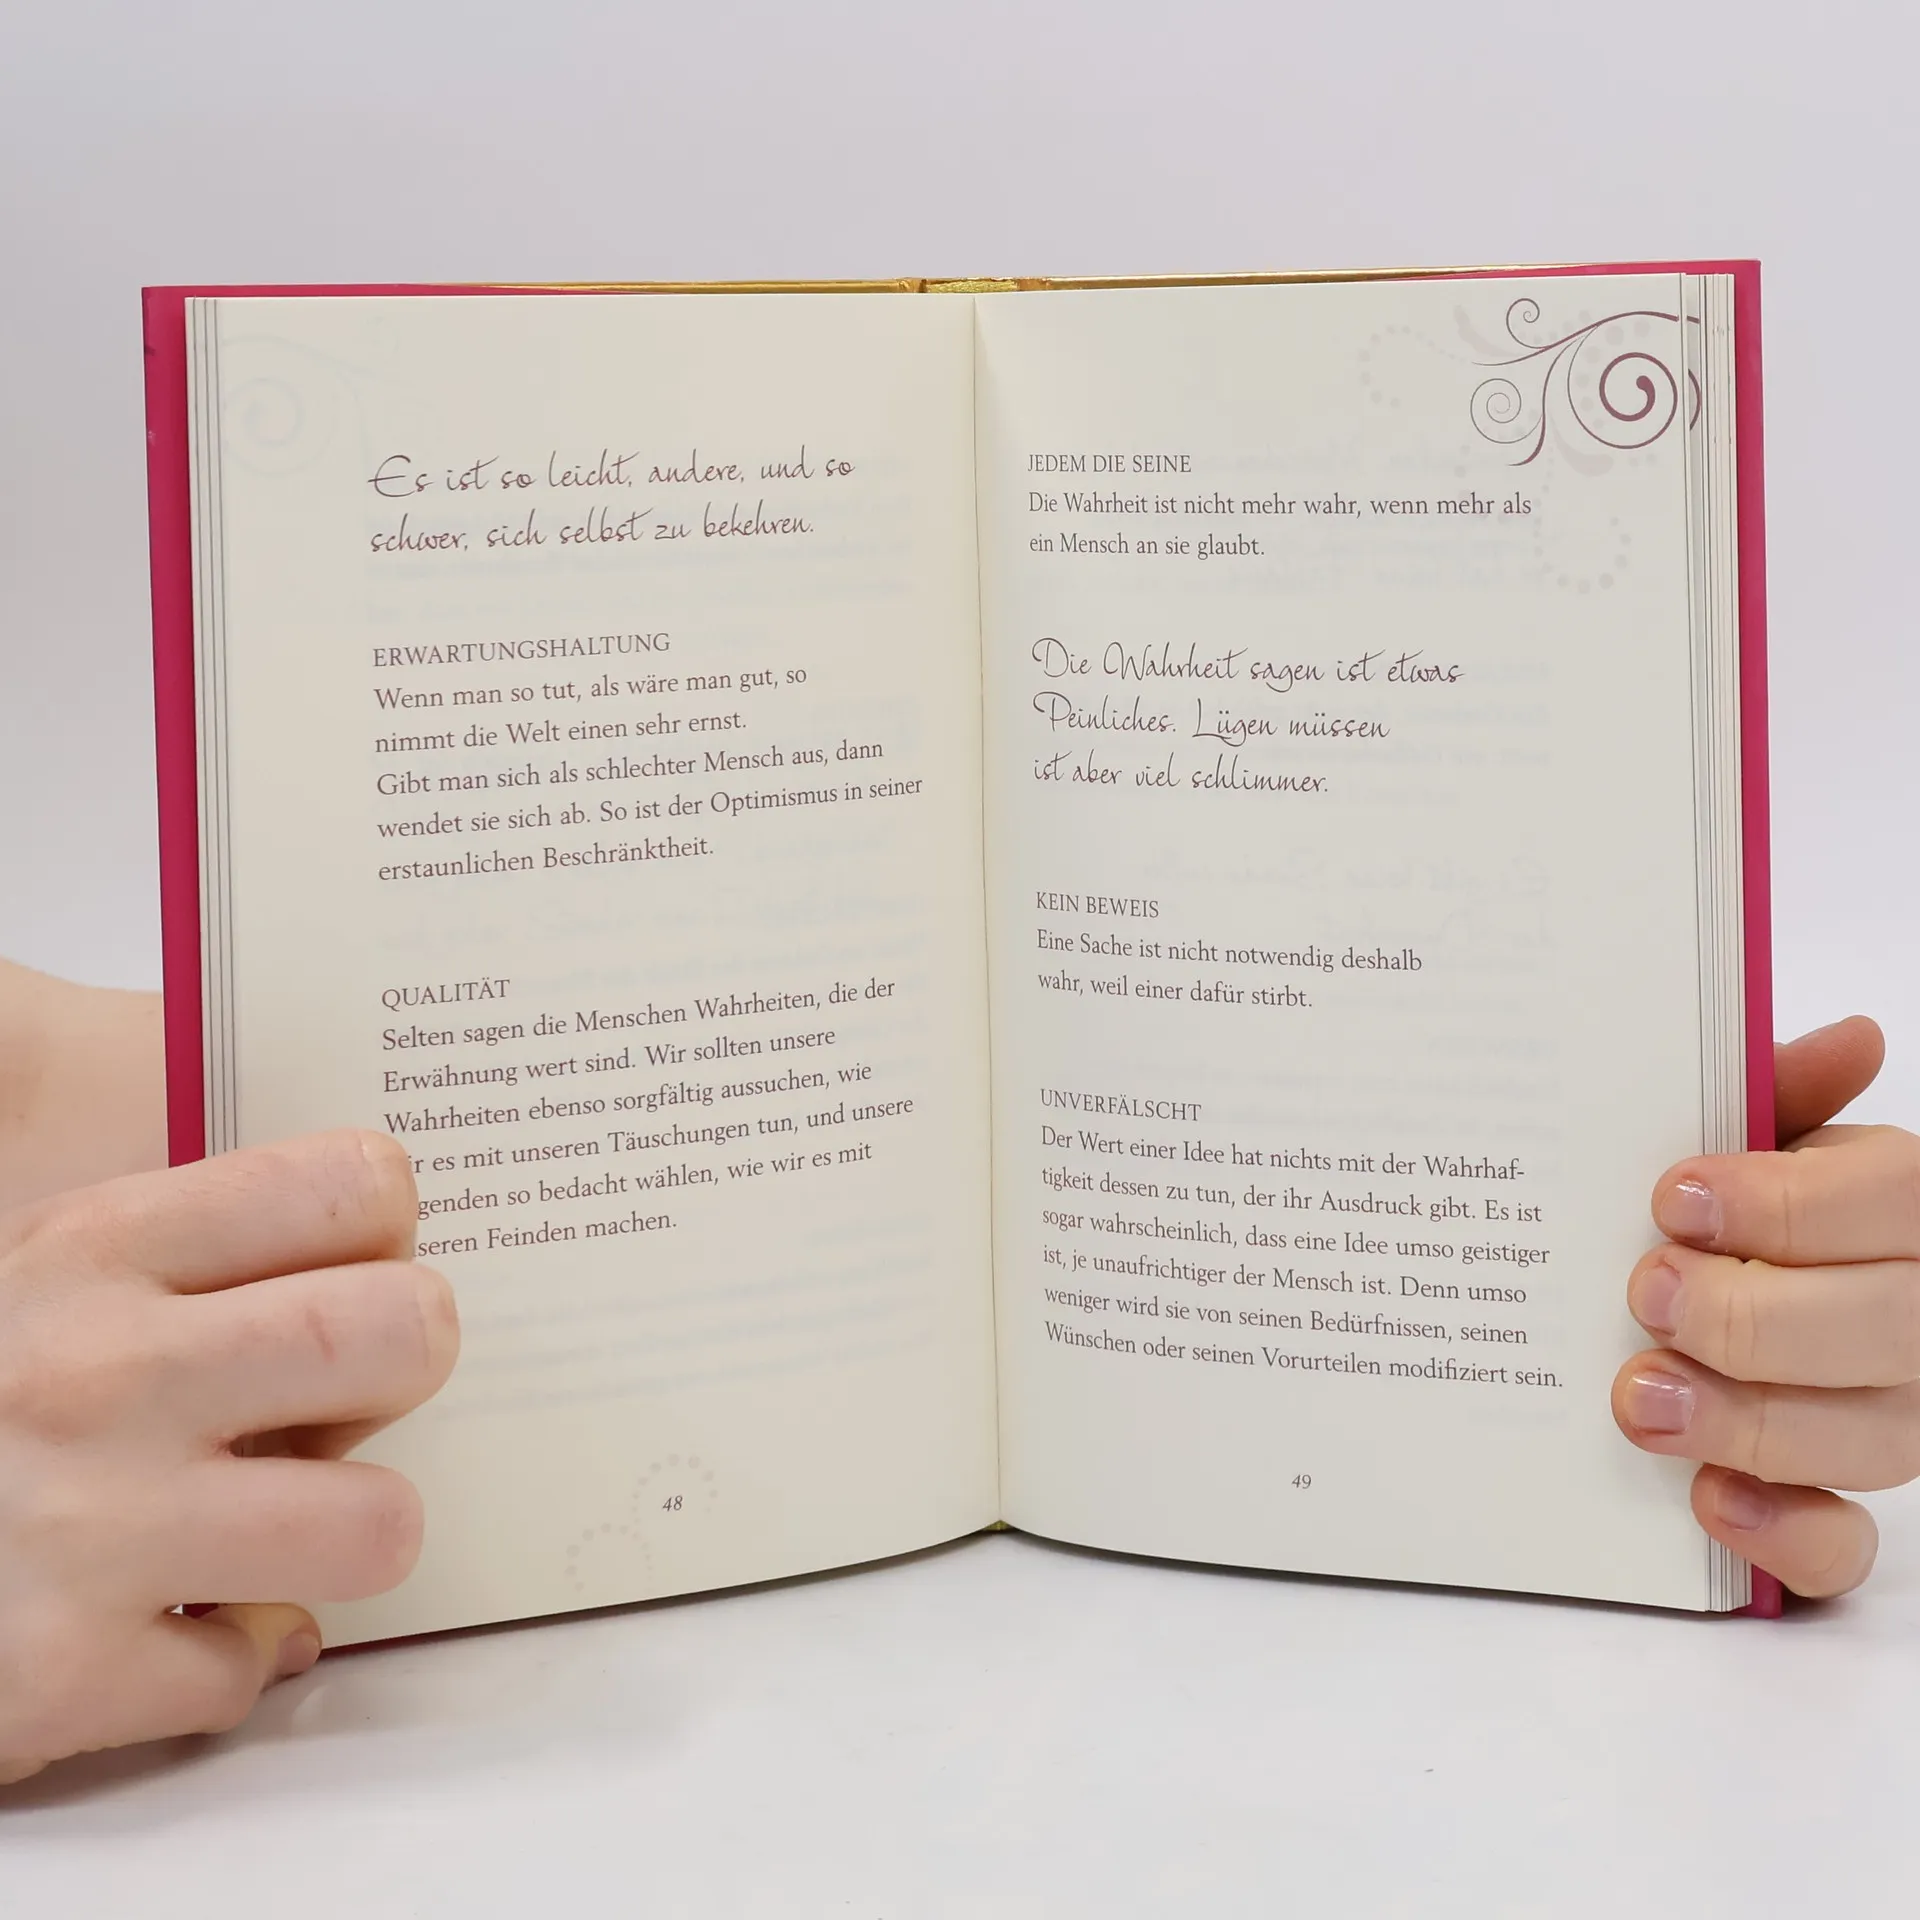 Es ist so leicht, andere, und so
schwer, sich selbst zu bekehren.
ERWARTUNGSHALTUNG
Wenn man so tut, als wäre man gut, so
nimmt die Welt einen sehr ernst.
Gibt man sich als schlechter Mensch aus, dann
wendet sie sich ab. So ist der Optimismus in seiner
erstaunlichen Beschränktheit.
QUALITÄT
Selten sagen die Menschen Wahrheiten, die der
Erwähnung wert sind. Wir sollten unsere
Wahrheiten ebenso sorgfältig aussuchen, wie
es mit unseren Täuschungen tun, und unsere
so bedacht wählen, wie wir es mit
Feinden machen.
48
JEDEM DIE SEINE
Die Wahrheit ist nicht mehr wahr, wenn mehr als
ein Mensch an sie glaubt.
Die Wahrheit sagen ist etwas
Peinliches. Lügen müssen
ist aber viel schlimmer.
KEIN BEWEIS
Eine Sache ist nicht notwendig deshalb
wahr, weil einer dafür stirbt.
UNVERFÄLSCHT
Der Wert einer Idee hat nichts mit der Wahrhaf-
tigkeit dessen zu tun, der ihr Ausdruck gibt. Es ist
sogar wahrscheinlich, dass eine Idee umso geistiger
ist, je unaufrichtiger der Mensch ist. Denn umso
weniger wird sie von seinen Bedürfnissen, seinen
Wünschen oder seinen Vorurteilen modifiziert sein.
49